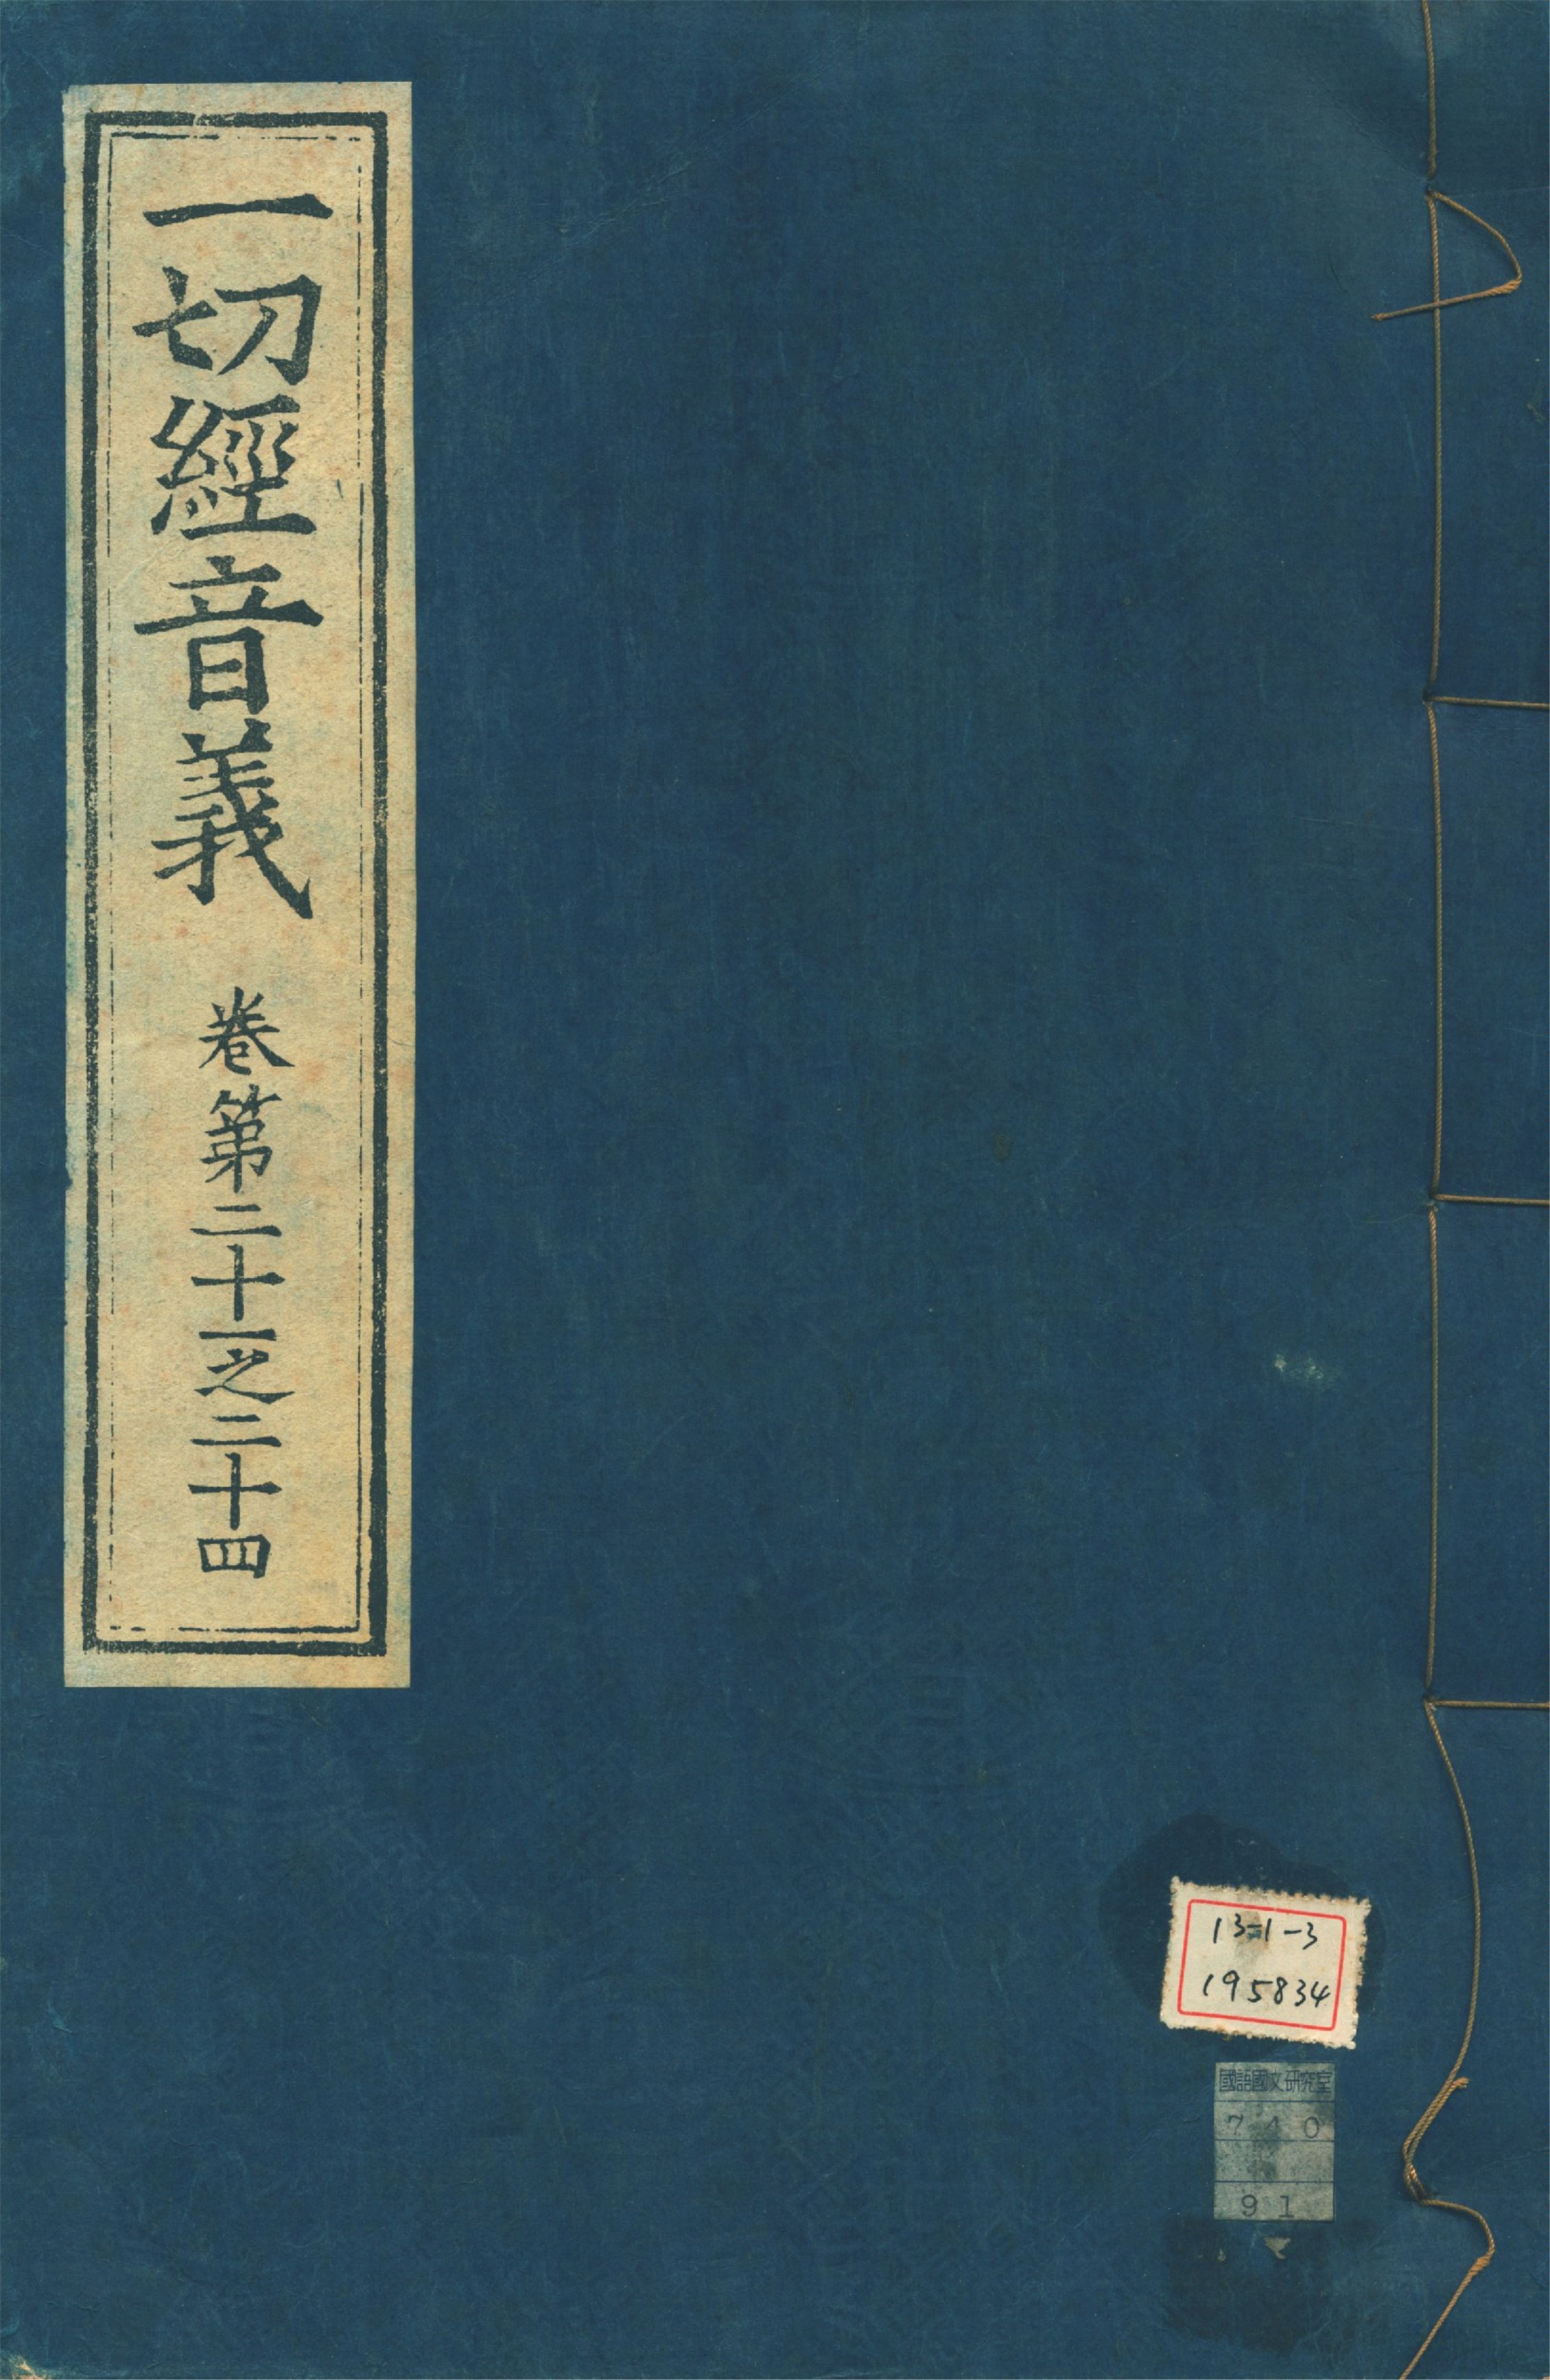 一切經音義 卷第二十一之二十四
13-1-3
195834
國語國文研究室
740
91